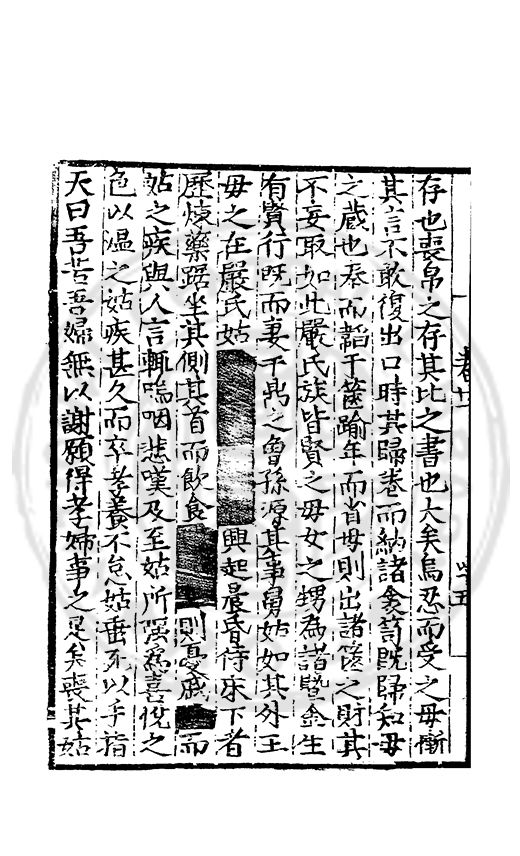 卷十一
五
存也喪帛之存其比之書也大矣烏忍而受之毋慚
其言不敢復出口時其歸卷而納諸衾笥旣歸和毋
之蔵也奉而韜于篋踰年而省毋則出諸篋之財其
不妄取如此嚴氏族皆賢之毋女之甥為諸曁金生
有賢行旣而妻于鼎之曾孫源其事舅姑如其外王
毋之在嚴氏姑
興起晨昏侍床下者
歷煉藥踞坐其側其首而飲食
則憂戚
而
姑之疾與人言輒嗚咽悲嘆及至姑所深為喜悅之
色以温之姑疾甚久而卒孝養不怠姑垂死以手指
天曰吾苦吾婦無以謝願得孝婦事之足矣喪其姑